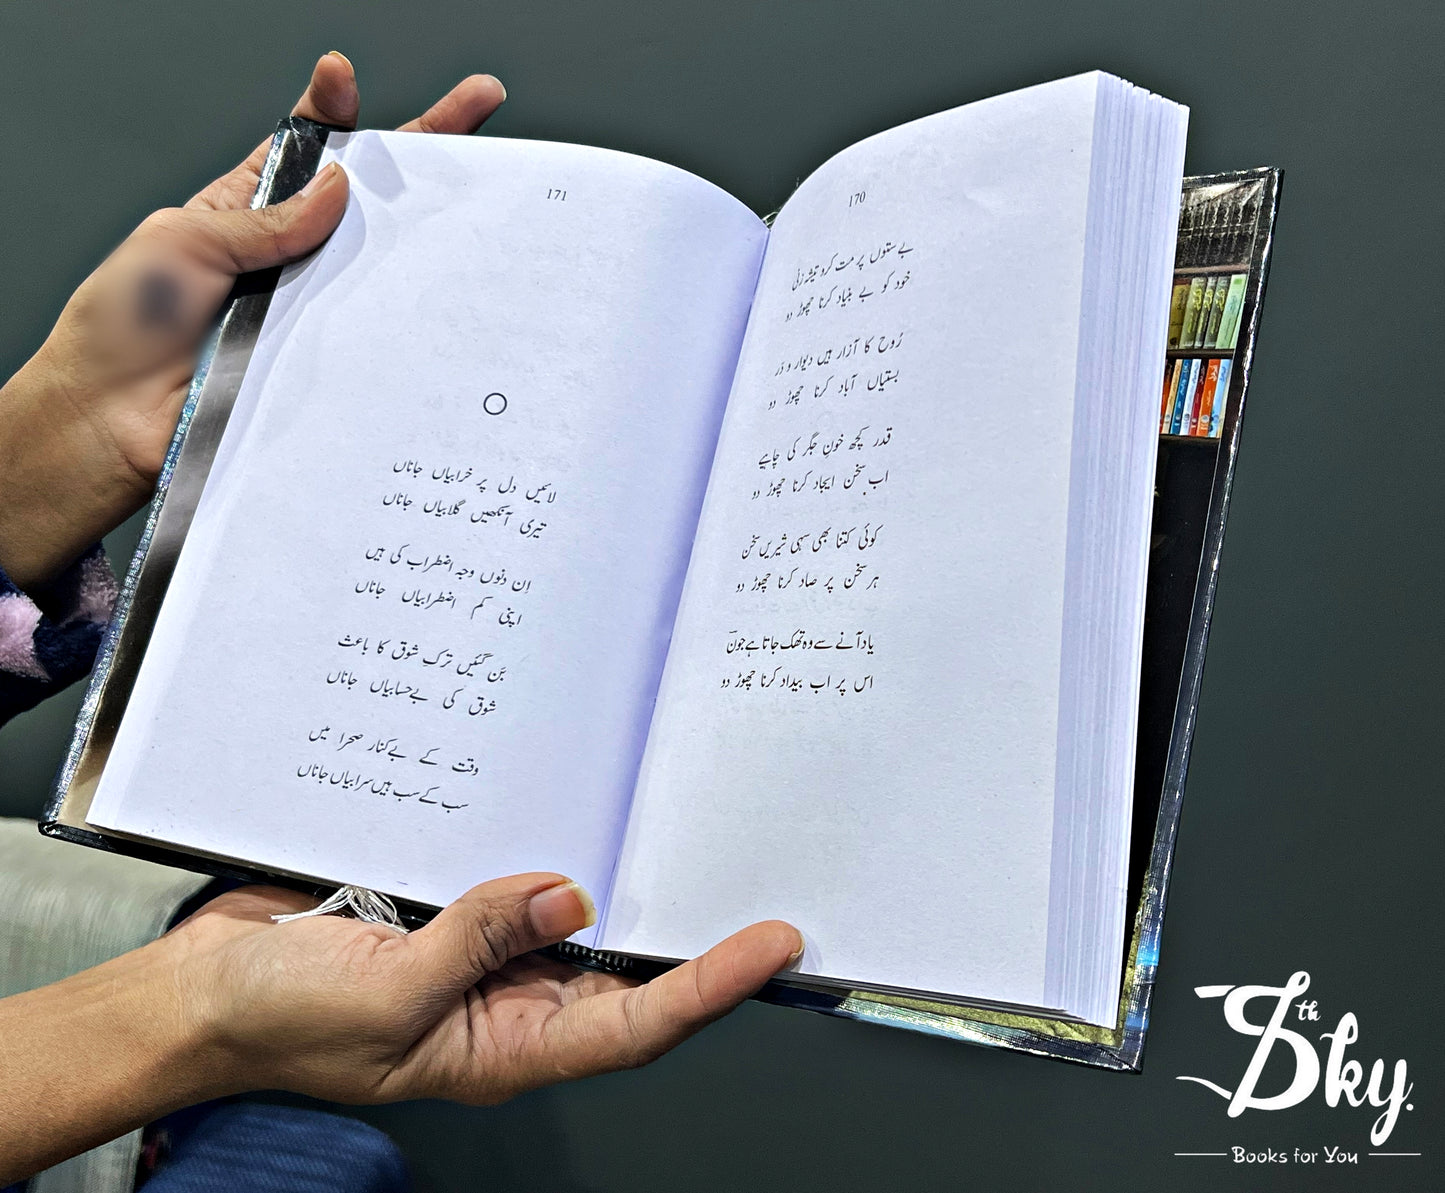 170
بے ستوں پر مت کرو تیشہ زنی
خود کو بے بنیاد کرنا چھوڑ دو
رُوح کا آزار ہیں دیوار و دَر
بستیاں آباد کرنا چھوڑ دو
قدر کچھ خونِ جگر کی چاہیے
اب سخن ایجاد کرنا چھوڑ دو
کوئی کتنا بھی سہی شیریں سخن
ہر سخن پر صاد کرنا چھوڑ دو
یاد آنے سے وہ تھک جاتا ہے جونؔ
اس پر اب بیداد کرنا چھوڑ دو
171
لائیں دل پر خرابیاں جاناں
تیری آنکھیں گلابیاں جاناں
اِن دنوں وجہ اضطراب کی ہیں
اپنی کم اضطرابیاں جاناں
بَن گئیں ترکِ شوق کا باعث
شوق کی بےحسابیاں جاناں
وقت کے بےکنار صحرا میں
سب کے سب ہیں سرابیاں جاناں
7th Sky.
Books for You